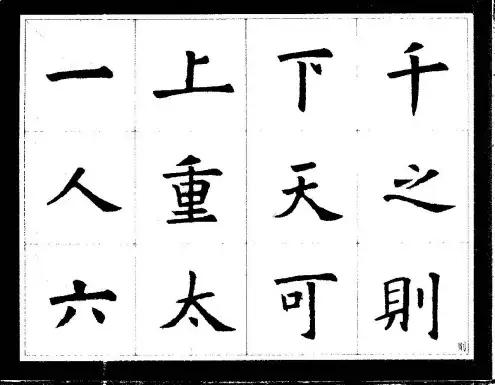 千之則
下天可
上重太
一人六
則